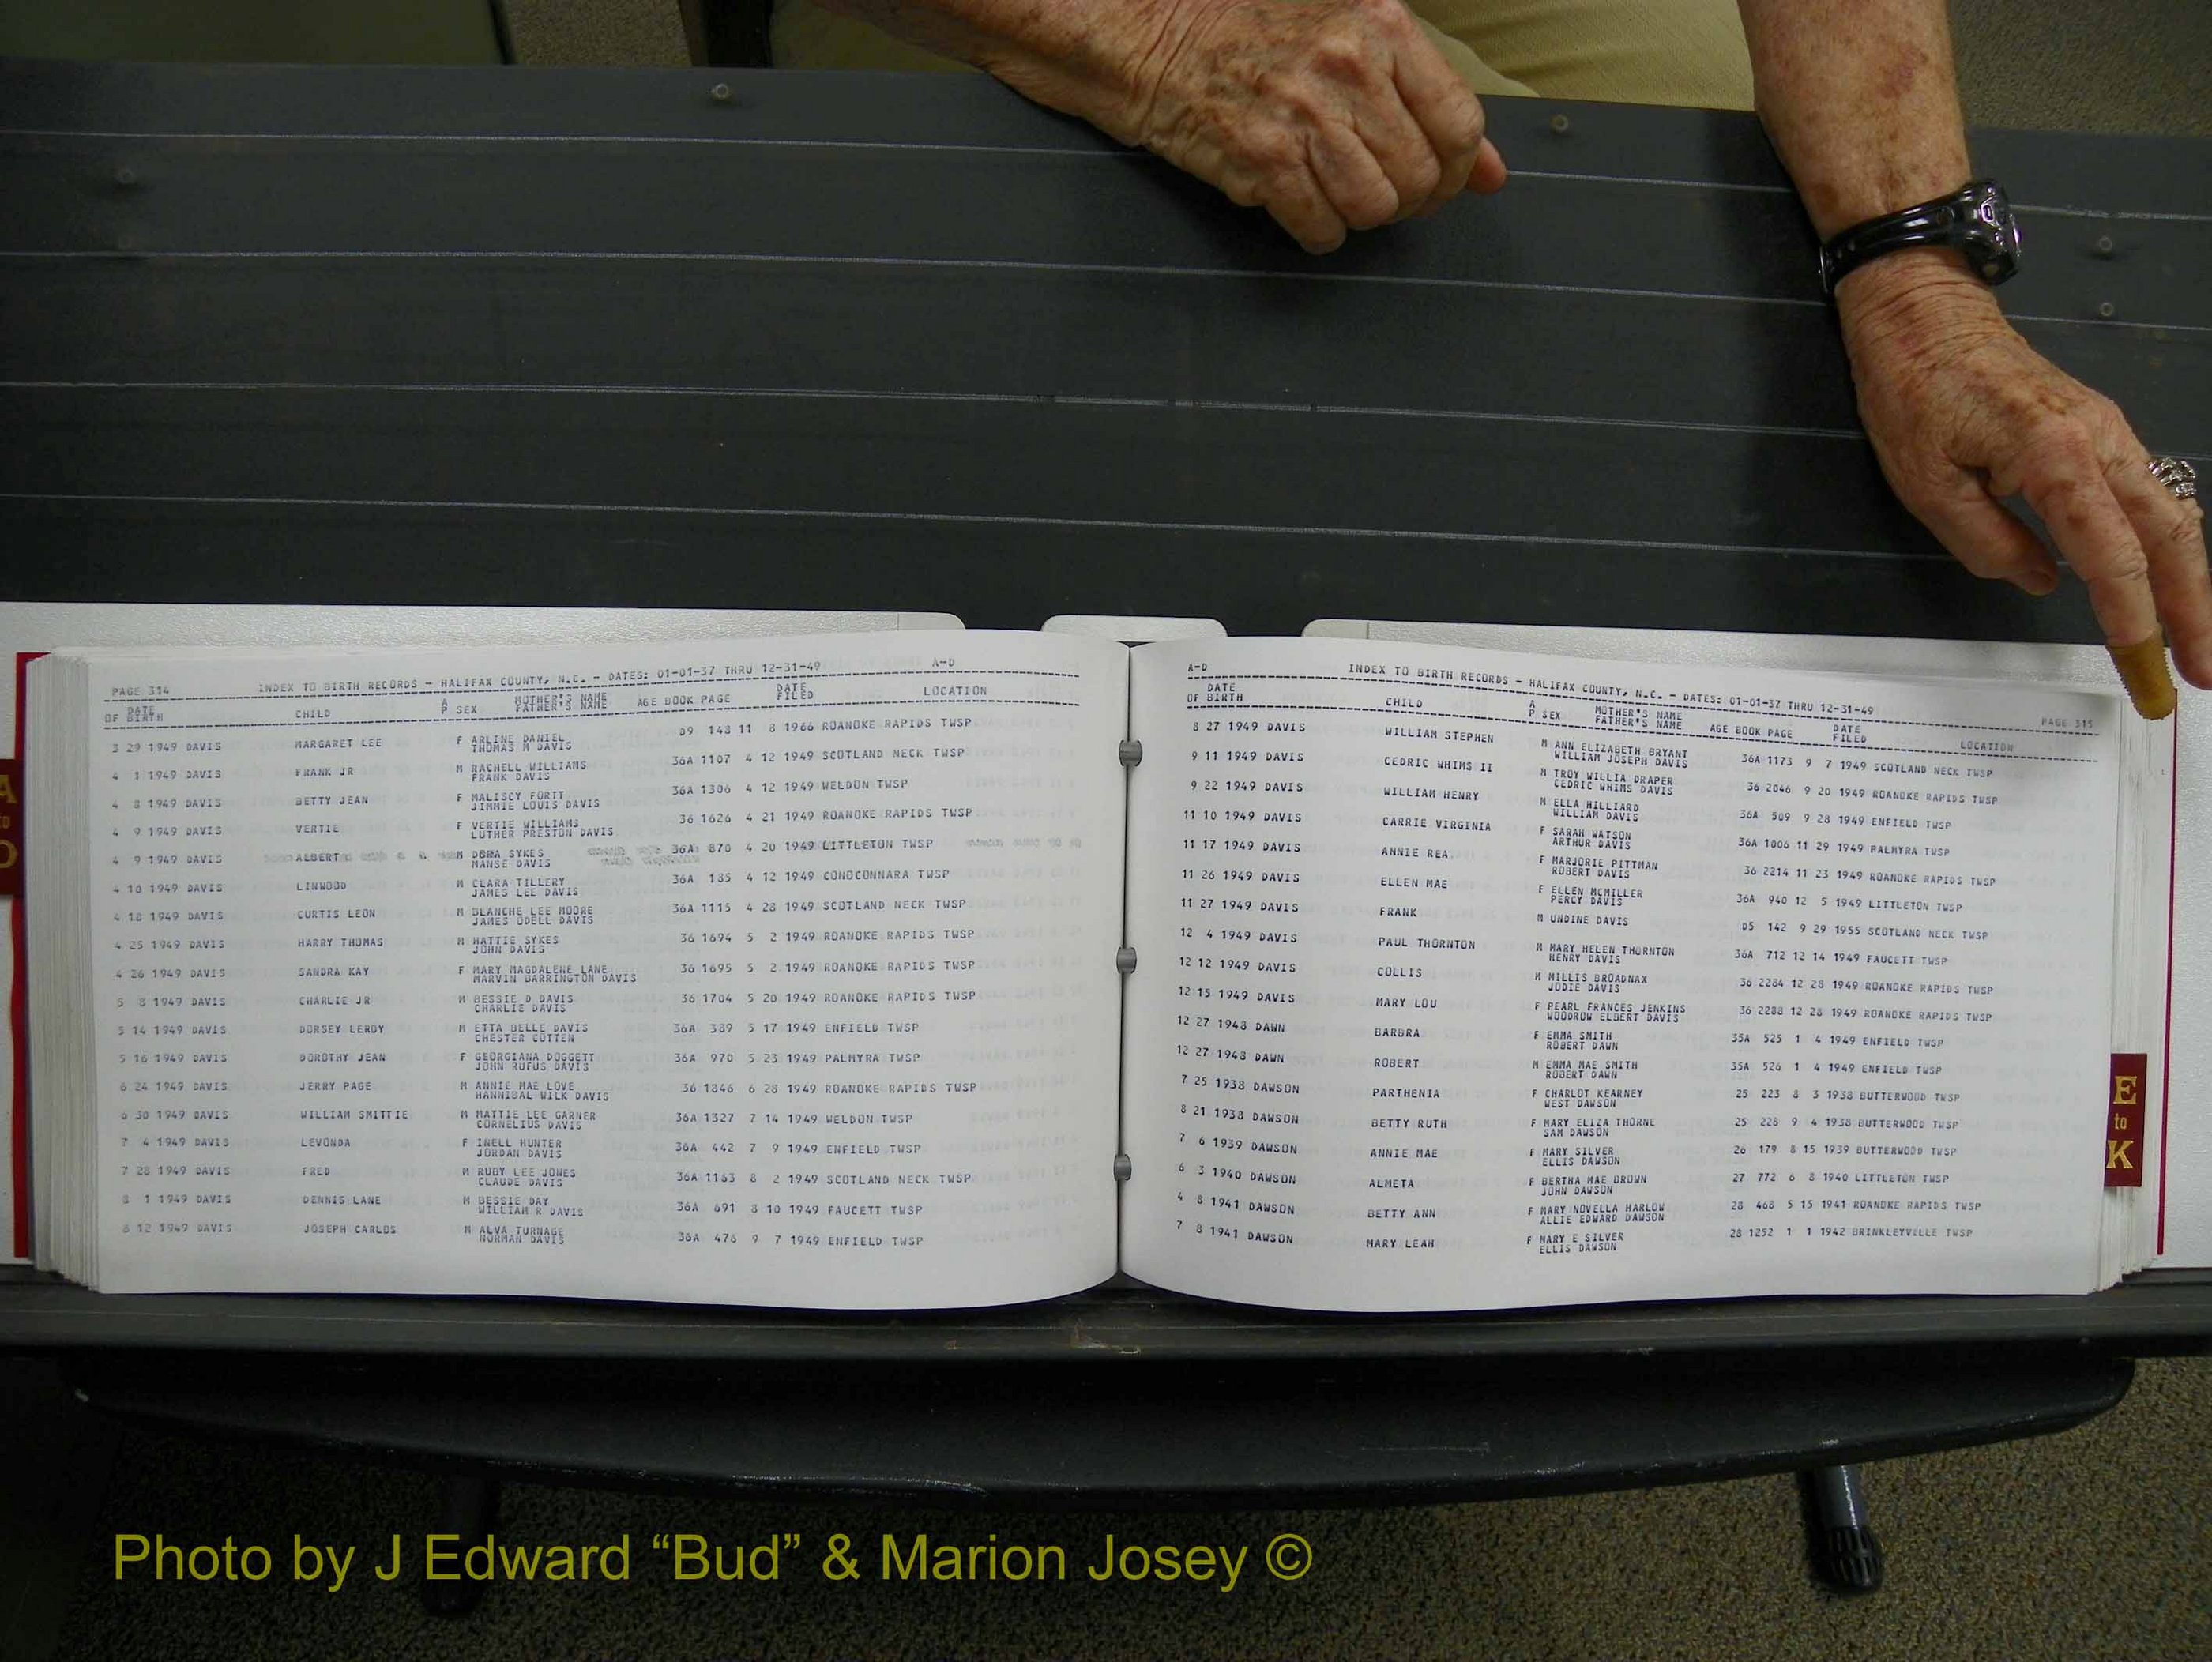 PAGE 314 INDEX TO BIRTH RECORDS - HALIFAX COUNTY, N.C. - DATES: 01-01-37 THRU 12-31-49 A-D
DATE OF BIRTH CHILD A P SEX MOTHER'S NAME FATHER'S NAME AGE BOOK PAGE DATE FILED LOCATION
3 29 1949 DAVIS MARGARET LEE F ARLINE DANIEL D9 148 11 8 1966 ROANOKE RAPIDS TWSP
THOMAS M DAVIS
4 1 1949 DAVIS FRANK JR M RACHELL WILLIAMS 36A 1107 4 12 1949 SCOTLAND NECK TWSP
FRANK DAVIS
4 8 1949 DAVIS BETTY JEAN F MALISCY FORTT 36A 1306 4 12 1949 WELDON TWSP
JIMMIE LOUIS DAVIS
4 9 1949 DAVIS VERTIE F VERTIE WILLIAMS 36 1626 4 21 1949 ROANOKE RAPIDS TWSP
LUTHER PRESTON DAVIS
4 9 1949 DAVIS ALBERT M DORA SYKES 36A 870 4 20 1949 LITTLETON TWSP
MANSE DAVIS
4 10 1949 DAVIS LINWOOD M CLARA TILLERY 36A 185 4 12 1949 CONOCONNARA TWSP
JAMES LEE DAVIS
4 18 1949 DAVIS CURTIS LEON M BLANCHE LEE MOORE 36A 1115 4 28 1949 SCOTLAND NECK TWSP
JAMES ODELL DAVIS
4 25 1949 DAVIS HARRY THOMAS M HATTIE SYKES 36 1694 5 2 1949 ROANOKE RAPIDS TWSP
JOHN DAVIS
4 26 1949 DAVIS SANDRA KAY F MARY MAGDALENE LANE 36 1695 5 2 1949 ROANOKE RAPIDS TWSP
MARVIN BARRINGTON DAVIS
5 8 1949 DAVIS CHARLIE JR M BESSIE D DAVIS 36 1704 5 20 1949 ROANOKE RAPIDS TWSP
CHARLIE DAVIS
5 14 1949 DAVIS DORSEY LEROY M ETTA BELLE DAVIS 36A 389 5 17 1949 ENFIELD TWSP
CHESTER COTTEN
5 16 1949 DAVIS DOROTHY JEAN F GEORGIANA DOGGETT 36A 970 5 23 1949 PALMYRA TWSP
JOHN RUFUS DAVIS
6 24 1949 DAVIS JERRY PAGE M ANNIE MAE LOVE 36 1846 6 28 1949 ROANOKE RAPIDS TWSP
HANNIBAL WILK DAVIS
6 30 1949 DAVIS WILLIAM SMITTIE M MATTIE LEE GARNER 36A 1327 7 14 1949 WELDON TWSP
CORNELIUS DAVIS
7 4 1949 DAVIS LEVONDA F INELL HUNTER 36A 442 7 9 1949 ENFIELD TWSP
JORDAN DAVIS
7 28 1949 DAVIS FRED M RUBY LEE JONES 36A 1163 8 2 1949 SCOTLAND NECK TWSP
CLAUDE DAVIS
8 1 1949 DAVIS DENNIS LANE M BESSIE DAY 36A 691 8 10 1949 FAUCETT TWSP
WILLIAM R DAVIS
8 12 1949 DAVIS JOSEPH CARLOS M ALVA TURNAGE 36A 476 9 7 1949 ENFIELD TWSP
NORMAN DAVIS
A-D INDEX TO BIRTH RECORDS - HALIFAX COUNTY, N.C. - DATES: 01-01-37 THRU 12-31-49 PAGE 315
DATE OF BIRTH CHILD A P SEX MOTHER'S NAME FATHER'S NAME AGE BOOK PAGE DATE FILED LOCATION
8 27 1949 DAVIS WILLIAM STEPHEN M ANN ELIZABETH BRYANT 36A 1173 9 7 1949 SCOTLAND NECK TWSP
WILLIAM JOSEPH DAVIS
9 11 1949 DAVIS CEDRIC WHIMS II M TROY WILLIA DRAPER 36 2046 9 20 1949 ROANOKE RAPIDS TWSP
CEDRIC WHIMS DAVIS
9 22 1949 DAVIS WILLIAM HENRY M ELLA HILLIARD 36A 509 9 28 1949 ENFIELD TWSP
WILLIAM DAVIS
11 10 1949 DAVIS CARRIE VIRGINIA F SARAH WATSON 36A 1006 11 29 1949 PALMYRA TWSP
ARTHUR DAVIS
11 17 1949 DAVIS ANNIE REA F MARJORIE PITTMAN 36 2214 11 23 1949 ROANOKE RAPIDS TWSP
ROBERT DAVIS
11 26 1949 DAVIS ELLEN MAE F ELLEN MCMILLER 36A 940 12 5 1949 LITTLETON TWSP
PERCY DAVIS
11 27 1949 DAVIS FRANK M UNDINE DAVIS D5 142 9 29 1955 SCOTLAND NECK TWSP
12 4 1949 DAVIS PAUL THORNTON M MARY HELEN THORNTON 36A 712 12 14 1949 FAUCETT TWSP
HENRY DAVIS
12 12 1949 DAVIS COLLIS M MILLIS BROADNAX 36 2284 12 28 1949 ROANOKE RAPIDS TWSP
JODIE DAVIS
12 15 1949 DAVIS MARY LOU F PEARL FRANCES JENKINS 36 2288 12 28 1949 ROANOKE RAPIDS TWSP
WOODROW ELBERT DAVIS
12 27 1948 DAWN BARBRA F EMMA SMITH 35A 525 1 4 1949 ENFIELD TWSP
ROBERT DAWN
12 27 1948 DAWN ROBERT M EMMA MAE SMITH 35A 526 1 4 1949 ENFIELD TWSP
ROBERT DAWN
7 25 1938 DAWSON PARTHENIA F CHARLOT KEARNEY 25 223 8 3 1938 BUTTERWOOD TWSP
WEST DAWSON
8 21 1938 DAWSON BETTY RUTH F MARY ELIZA THORNE 25 228 9 4 1938 BUTTERWOOD TWSP
SAM DAWSON
7 6 1939 DAWSON ANNIE MAE F MARY SILVER 26 179 8 15 1939 BUTTERWOOD TWSP
ELLIS DAWSON
6 3 1940 DAWSON ALMETA F BERTHA MAE BROWN 27 772 6 8 1940 LITTLETON TWSP
JOHN DAWSON
4 8 1941 DAWSON BETTY ANN F MARY NOVELLA HARLOW 28 468 5 15 1941 ROANOKE RAPIDS TWSP
ALLIE EDWARD DAWSON
7 8 1941 DAWSON MARY LEAH F MARY E SILVER 28 1252 1 1 1942 BRINKLEYVILLE TWSP
ELLIS DAWSON
A
to
D
E
to
K
Photo by J Edward “Bud” & Marion Josey ©